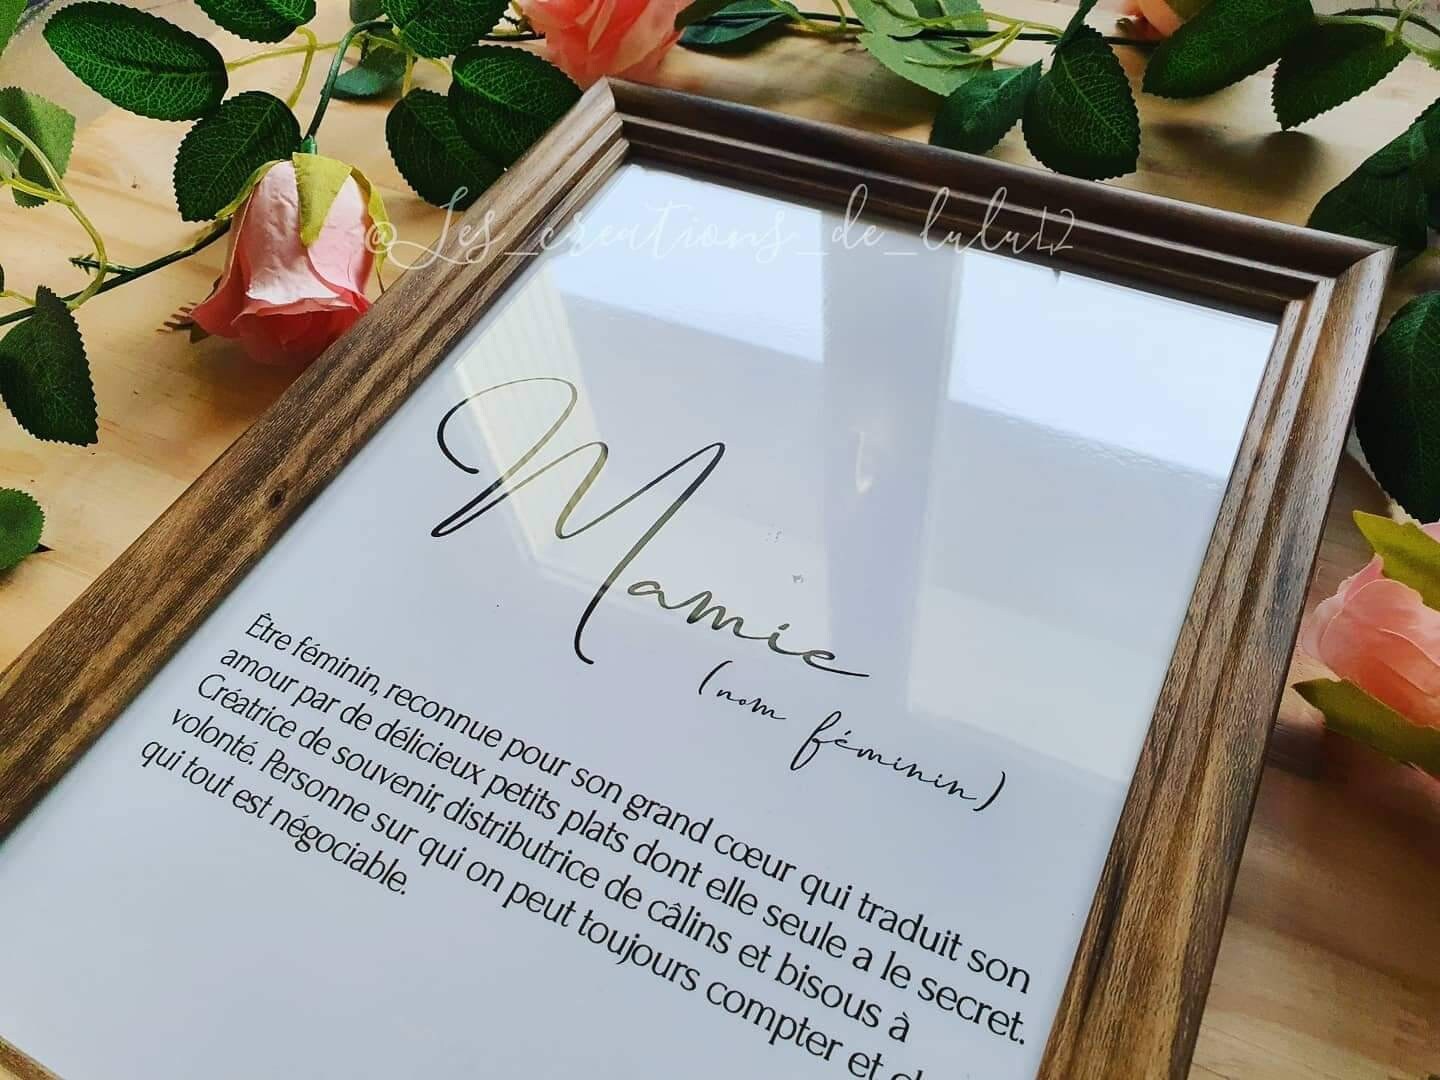 @Les_creations_de_lulu12
Mamie
(nom féminin)
Être féminin, reconnue pour son grand cœur qui traduit son
amour par de délicieux petits plats dont elle seule a le secret.
Créatrice de souvenir, distributrice de câlins et bisous à
volonté. Personne sur qui on peut toujours compter et
qui tout est négociable.